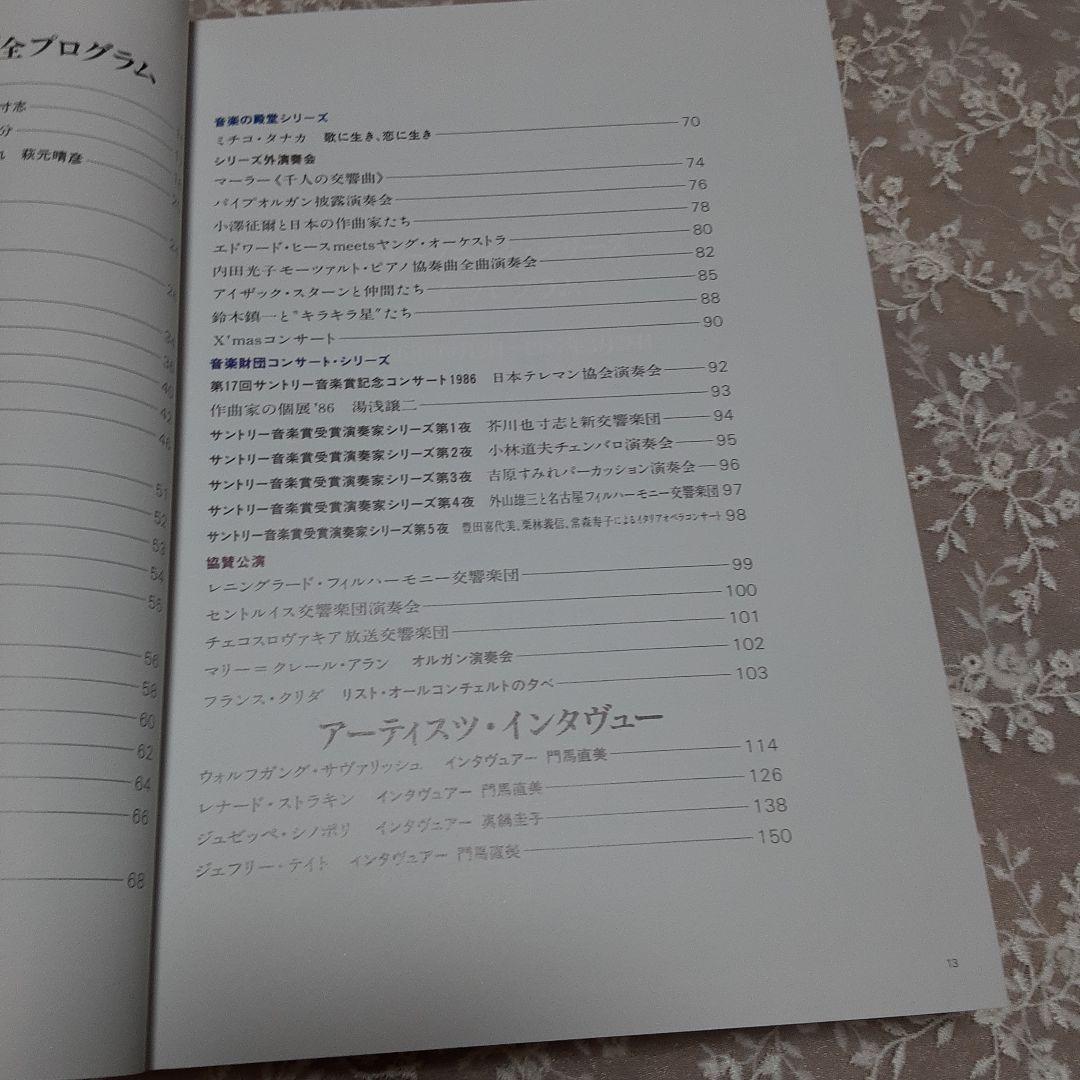 全プログラム
寸志
分
れ 萩元晴彦
34
36
40
42
46
51
52
53
54
56
56
58
60
62
64
66
68
音楽の殿堂シリーズ
ミチコ・タナカ 歌に生き、恋に生き 70
シリーズ外演奏会
マーラー《千人の交響曲》 74
パイプオルガン披露演奏会 76
小澤征爾と日本の作曲家たち 78
エドワード・ヒースmeetsヤング・オーケストラ 80
内田光子モーツァルト・ピアノ協奏曲全曲演奏会 82
アイザック・スターンと仲間たち 85
鈴木鎮一と"キラキラ星"たち 88
X'masコンサート 90
音楽財団コンサート・シリーズ
第17回サントリー音楽賞記念コンサート1986 日本テレマン協会演奏会 92
作曲家の個展'86 湯浅譲二 93
サントリー音楽賞受賞演奏家シリーズ第1夜 芥川也寸志と新交響楽団 94
サントリー音楽賞受賞演奏家シリーズ第2夜 小林道夫チェンバロ演奏会 95
サントリー音楽賞受賞演奏家シリーズ第3夜 吉原すみれパーカッション演奏会 96
サントリー音楽賞受賞演奏家シリーズ第4夜 外山雄三と名古屋フィルハーモニー交響楽団 97
サントリー音楽賞受賞演奏家シリーズ第5夜 豊田喜代美、栗林義信、常森寿子によるイタリアオペラコンサート 98
協賛公演
レニングラード・フィルハーモニー交響楽団 99
セントルイス交響楽団演奏会 100
チェコスロヴァキア放送交響楽団 101
マリー＝クレール・アラン オルガン演奏会 102
フランス・クリダ リスト・オールコンチェルトの夕べ 103
アーティスツ・インタヴュー
ウォルフガング・サヴァリッシュ インタヴュアー 門馬直美 114
レナード・ストラキン インタヴュアー 門馬直美 126
ジュゼッペ・シノポリ インタヴュアー 真鍋圭子 138
ジェフリー・テイト インタヴュアー 門馬直美 150
13